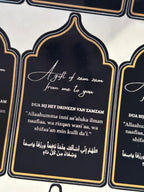 A gift of zam zam
from me to you
DUA BIJ HET DRINKEN VAN ZAMZAM
"Allaahumma inni as'aluka ilman
naafian, wa rizqan wasi'an, wa
shifaa'an min kulli da'i."
اللهم إني أسألك علما نافعا ورزقا واسعا
وشفاء من كل داء